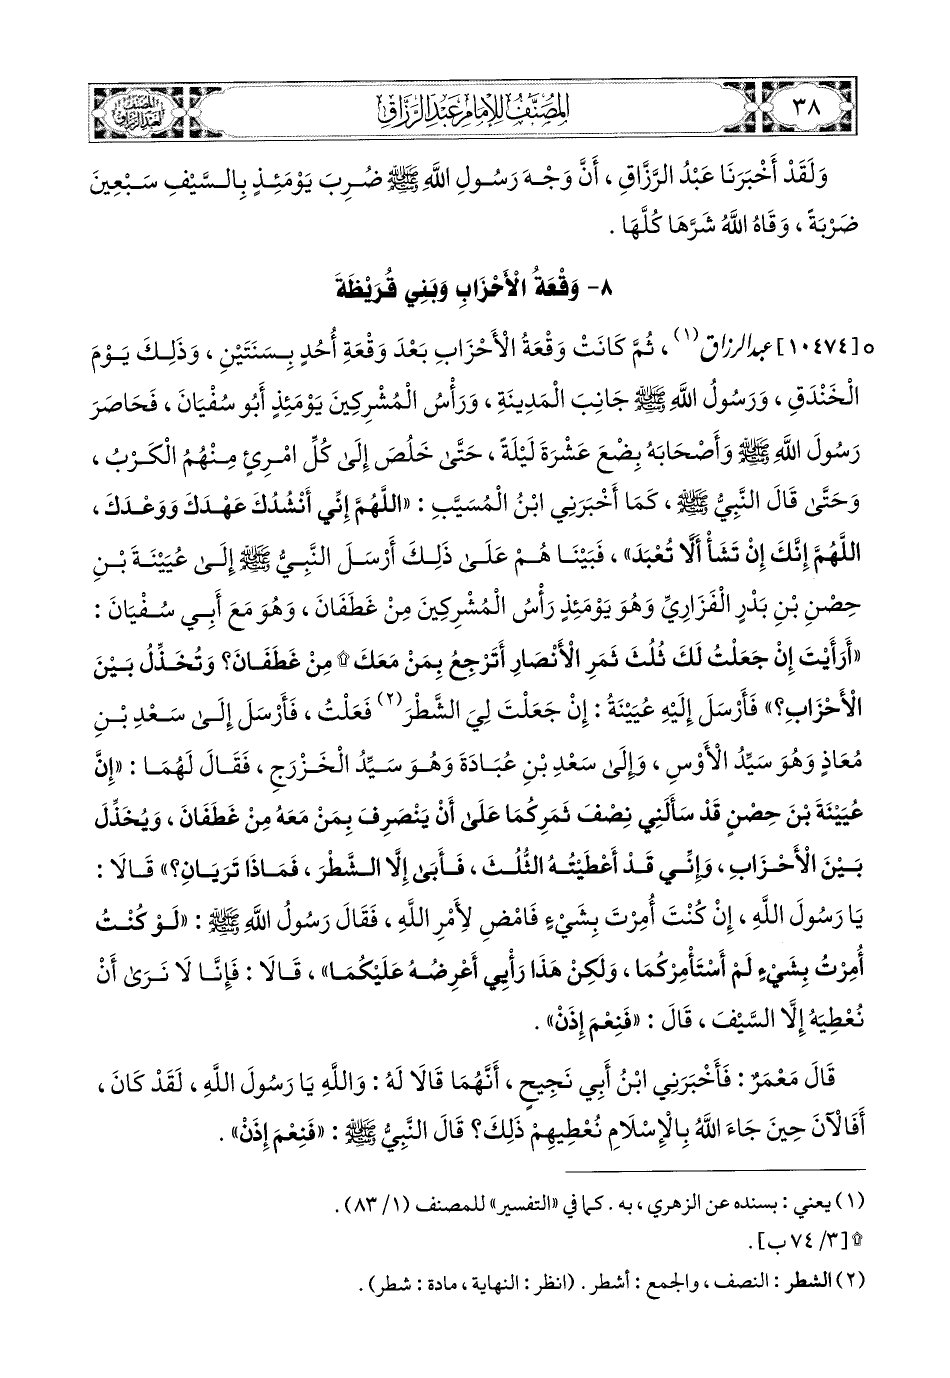 ٣٨
المُصَنَّفُ لِلإِمَامِ عَبْدِ الرَّزَّاقِ
المصنف لعبد الرزاق
وَلَقَدْ أَخْبَرَنَا عَبْدُ الرَّزَّاقِ ، أَنَّ وَجْهَ رَسُولِ اللَّهِ ﷺ ضُرِبَ يَوْمَئِذٍ بِالسَّيْفِ سَبْعِينَ
ضَرْبَةً ، وَقَاهُ اللَّهُ شَرَّهَا كُلَّهَا .
٨- وَقْعَةُ الْأَحْزَابِ وَبَنِي قُرَيْظَةَ
٥ [١٠٤٧٤] عبد الرزاق (١) ، ثُمَّ كَانَتْ وَقْعَةُ الْأَحْزَابِ بَعْدَ وَقْعَةِ أُحُدٍ بِسَنَتَيْنِ ، وَذَلِكَ يَوْمَ
الْخَنْدَقِ ، وَرَسُولُ اللَّهِ ﷺ جَانِبَ الْمَدِينَةِ ، وَرَأْسُ الْمُشْرِكِينَ يَوْمَئِذٍ أَبُو سُفْيَانَ ، فَحَاصَرَ
رَسُولَ اللَّهِ ﷺ وَأَصْحَابَهُ بِضْعَ عَشْرَةَ لَيْلَةً ، حَتَّى خَلُصَ إِلَى كُلِّ امْرِئٍ مِنْهُمُ الْكَرْبُ ،
وَحَتَّى قَالَ النَّبِيُّ ﷺ ، كَمَا أَخْبَرَنِي ابْنُ الْمُسَيَّبِ : «اللَّهُمَّ إِنِّي أَنْشُدُكَ عَهْدَكَ وَوَعْدَكَ ،
اللَّهُمَّ إِنَّكَ إِنْ تَشَأْ أَلَّا تُعْبَدَ» ، فَبَيْنَا هُمْ عَلَى ذَلِكَ أَرْسَلَ النَّبِيُّ ﷺ إِلَى عُيَيْنَةَ بْنِ
حِصْنِ بْنِ بَدْرٍ الْفَزَارِيِّ وَهُوَ يَوْمَئِذٍ رَأْسُ الْمُشْرِكِينَ مِنْ غَطَفَانَ ، وَهُوَ مَعَ أَبِي سُفْيَانَ :
«أَرَأَيْتَ إِنْ جَعَلْتُ لَكَ ثُلُثَ ثَمَرِ الْأَنْصَارِ أَتَرْجِعُ بِمَنْ مَعَكَ ۩ مِنْ غَطَفَانَ؟ وَتُخَذِّلُ بَيْنَ
الْأَحْزَابِ؟» فَأَرْسَلَ إِلَيْهِ عُيَيْنَةُ : إِنْ جَعَلْتَ لِيَ الشَّطْرَ (٢) فَعَلْتُ ، فَأَرْسَلَ إِلَى سَعْدِ بْنِ
مُعَاذٍ وَهُوَ سَيِّدُ الْأَوْسِ ، وَإِلَى سَعْدِ بْنِ عُبَادَةَ وَهُوَ سَيِّدُ الْخَزْرَجِ ، فَقَالَ لَهُمَا : «إِنَّ
عُيَيْنَةَ بْنَ حِصْنٍ قَدْ سَأَلَنِي نِصْفَ ثَمَرِكُمَا عَلَى أَنْ يَنْصَرِفَ بِمَنْ مَعَهُ مِنْ غَطَفَانَ ، وَيُخَذِّلَ
بَيْنَ الْأَحْزَابِ ، وَإِنِّي قَدْ أَعْطَيْتُهُ الثُّلُثَ ، فَأَبَى إِلَّا الشَّطْرَ ، فَمَاذَا تَرَيَانِ؟» قَالَا :
يَا رَسُولَ اللَّهِ ، إِنْ كُنْتَ أُمِرْتَ بِشَيْءٍ فَامْضِ لِأَمْرِ اللَّهِ ، فَقَالَ رَسُولُ اللَّهِ ﷺ : «لَوْ كُنْتُ
أُمِرْتُ بِشَيْءٍ لَمْ أَسْتَأْمِرْكُمَا ، وَلَكِنْ هَذَا رَأْيِي أَعْرِضُهُ عَلَيْكُمَا» ، قَالَا : فَإِنَّا لَا نَرَى أَنْ
نُعْطِيَهُ إِلَّا السَّيْفَ ، قَالَ : «فَنِعْمَ إِذَنْ» .
قَالَ مَعْمَرٌ : فَأَخْبَرَنِي ابْنُ أَبِي نَجِيحٍ ، أَنَّهُمَا قَالَا لَهُ : وَاللَّهِ يَا رَسُولَ اللَّهِ ، لَقَدْ كَانَ ،
أَفَالْآنَ حِينَ جَاءَ اللَّهُ بِالْإِسْلَامِ نُعْطِيهِمْ ذَلِكَ؟ قَالَ النَّبِيُّ ﷺ : «فَنِعْمَ إِذَنْ» .
(١) يعني : بسنده عن الزهري ، به . كما في «التفسير» للمصنف (١/ ٨٣) .
۩ [٣/ ٧٤ ب] .
(٢) الشطر : النصف ، والجمع : أشطر . (انظر : النهاية ، مادة : شطر) .